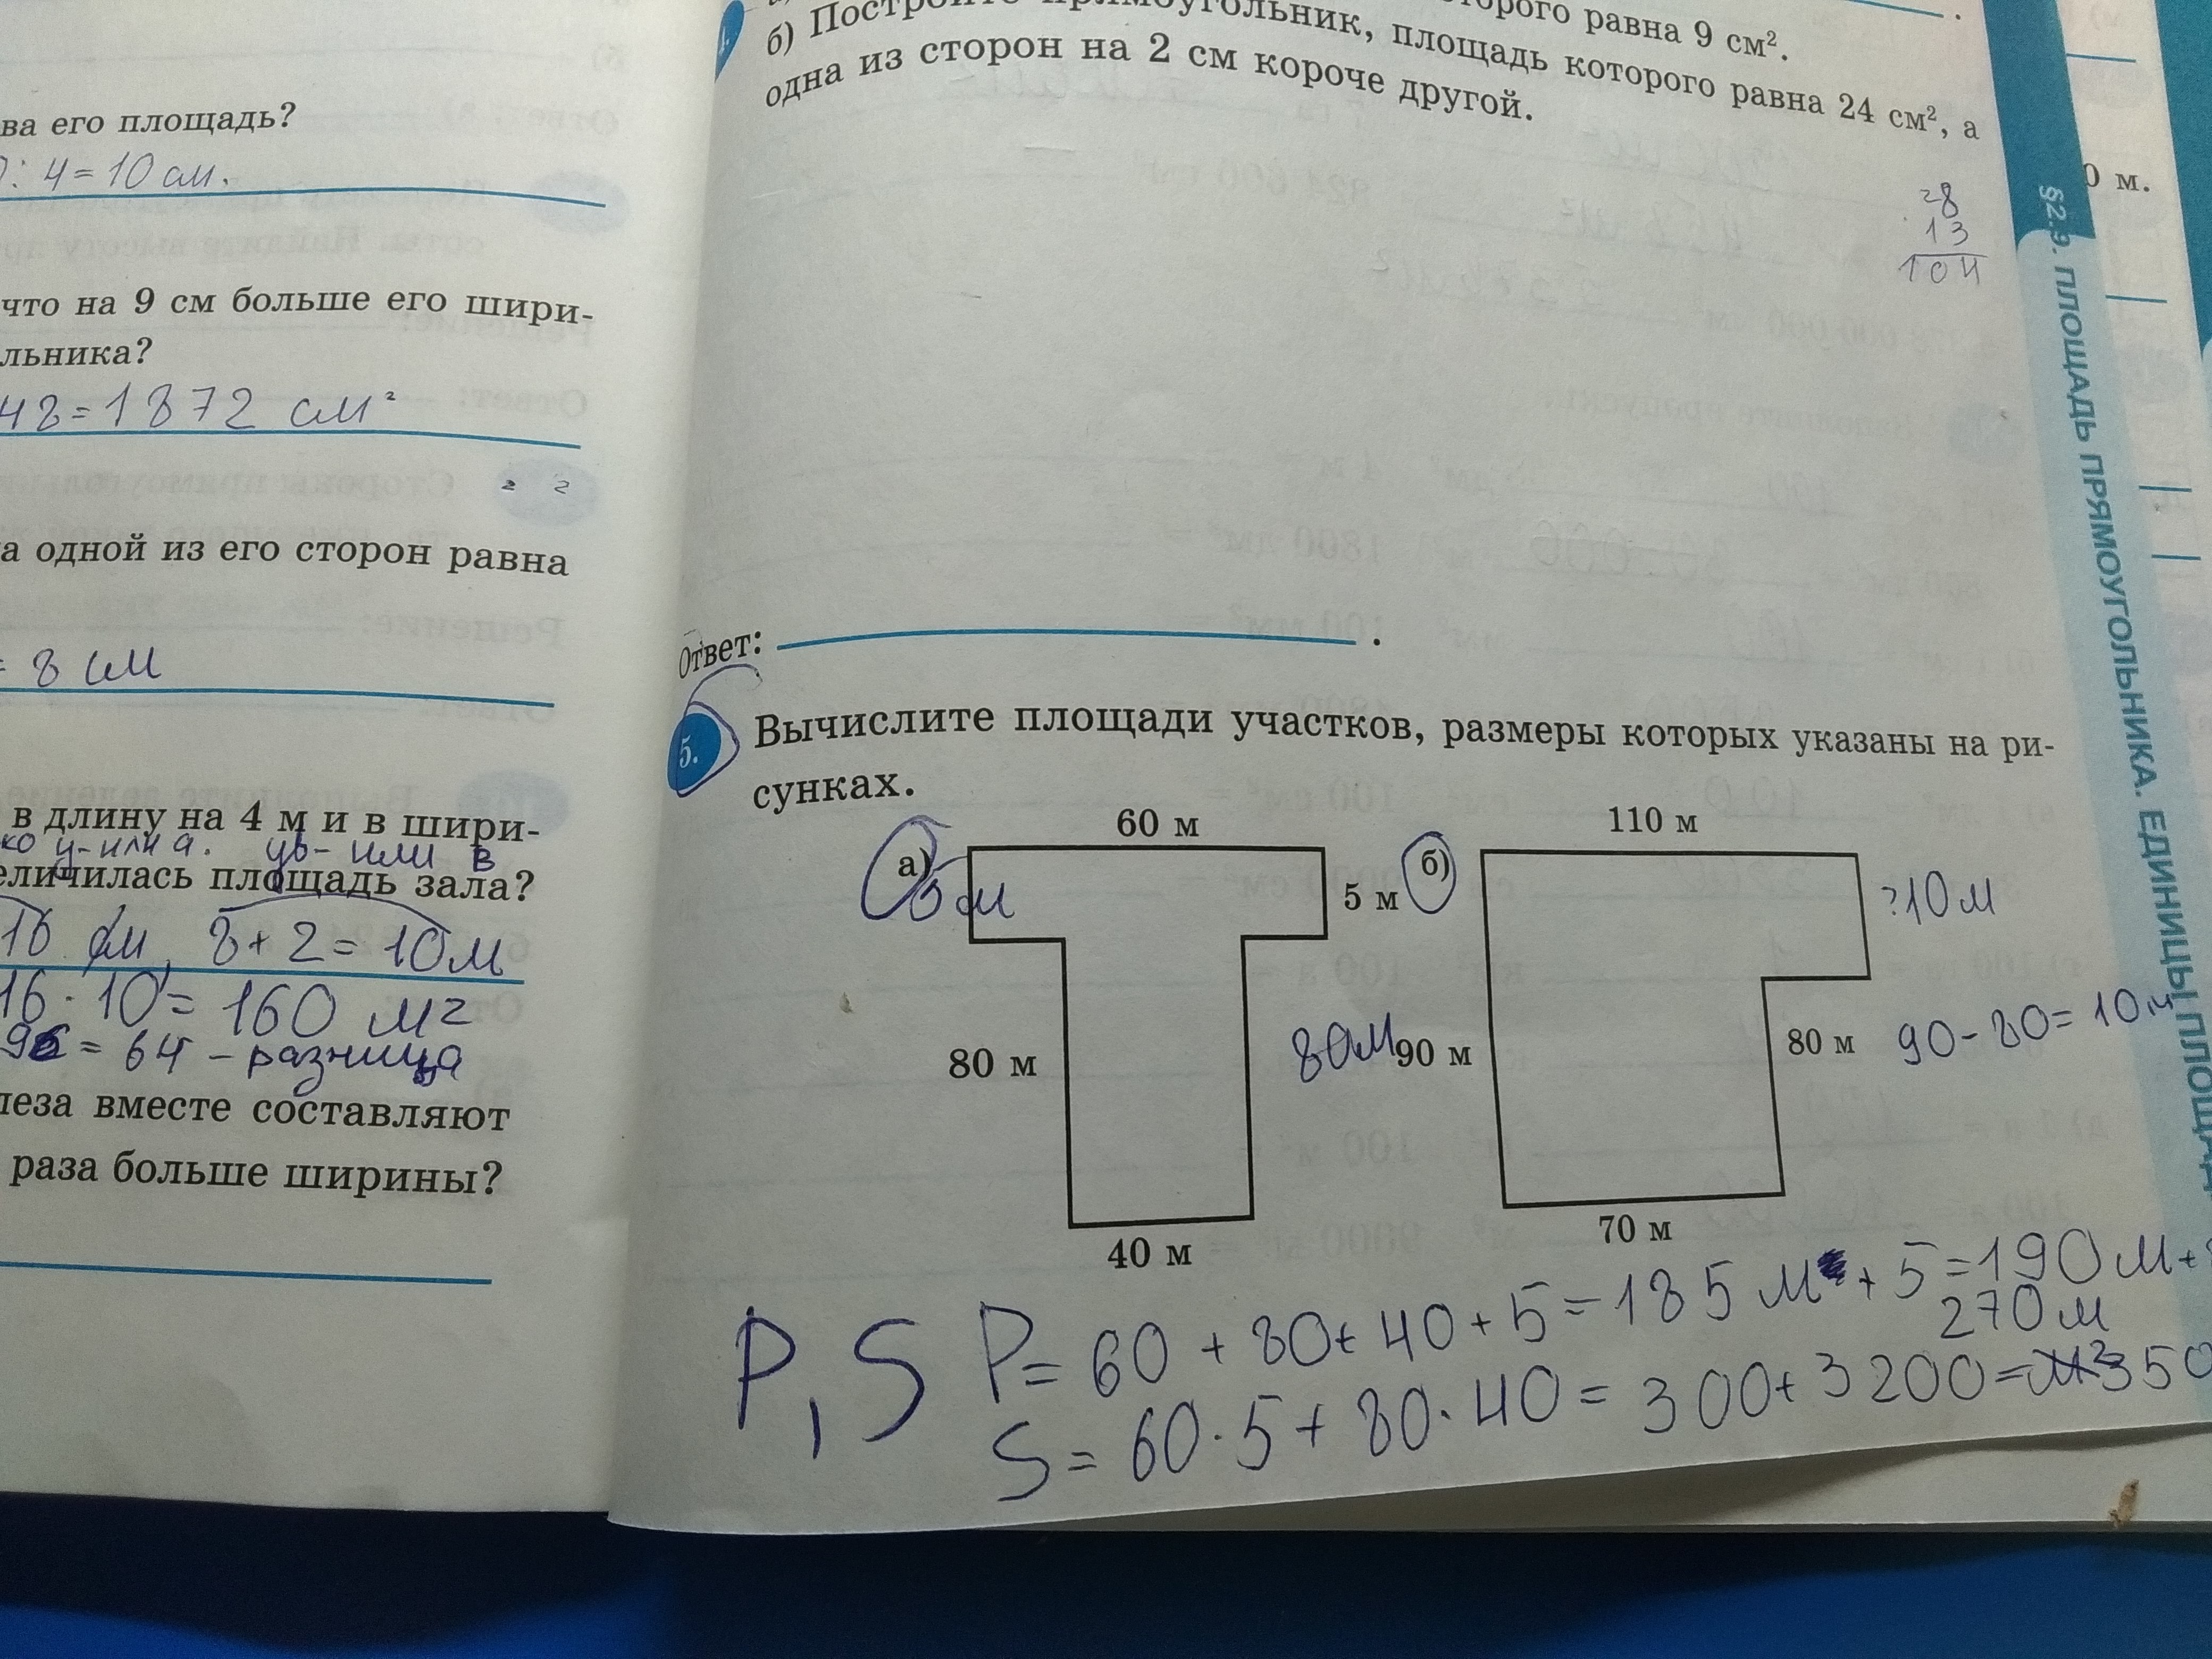 ва его площадь?
: 4 = 10 см.
что на 9 см больше его шири-
льника?
48 = 1872 см²
2 2
а одной из его сторон равна
= 8 см
в длину на 4 м и в шири-
ко у - или а. ув - или в
еличилась площадь зала?
16 м, 8 + 2 = 10 м
16 · 10 = 160 м²
96 = 64 - разница
леза вместе составляют
раза больше ширины?
оторого равна 9 см².
б) Постройте прямоугольник, площадь которого равна 24 см², а
одна из сторон на 2 см короче другой.
28
13
104
0 м.
Ответ: .
5. Вычислите площади участков, размеры которых указаны на ри-
сунках.
60 м
110 м
а)
5 м
5 м
б)
?10 м
80 м
80 м
90 м
80 м
90 - 80 = 10 м
40 м
70 м
P, S
P = 60 + 80 + 40 + 5 = 185 м + 5 = 190 м +
270 м
S = 60 · 5 + 80 · 40 = 300 + 3200 = м² 350
§2.9. ПЛОЩАДЬ ПРЯМОУГОЛЬНИКА. ЕДИНИЦЫ ПЛОЩАД